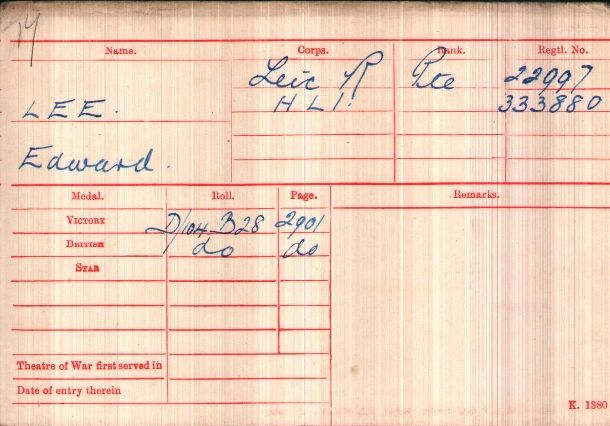 14
Name. Corps. Rank. Regtl. No.
Leic R Pte 22997
LEE. H L I. 333880
Edward.
Medal. Roll. Page. Remarks.
VICTORY D/104 B28 2901
BRITISH do do
STAR
Theatre of War first served in
Date of entry therein
K. 1380